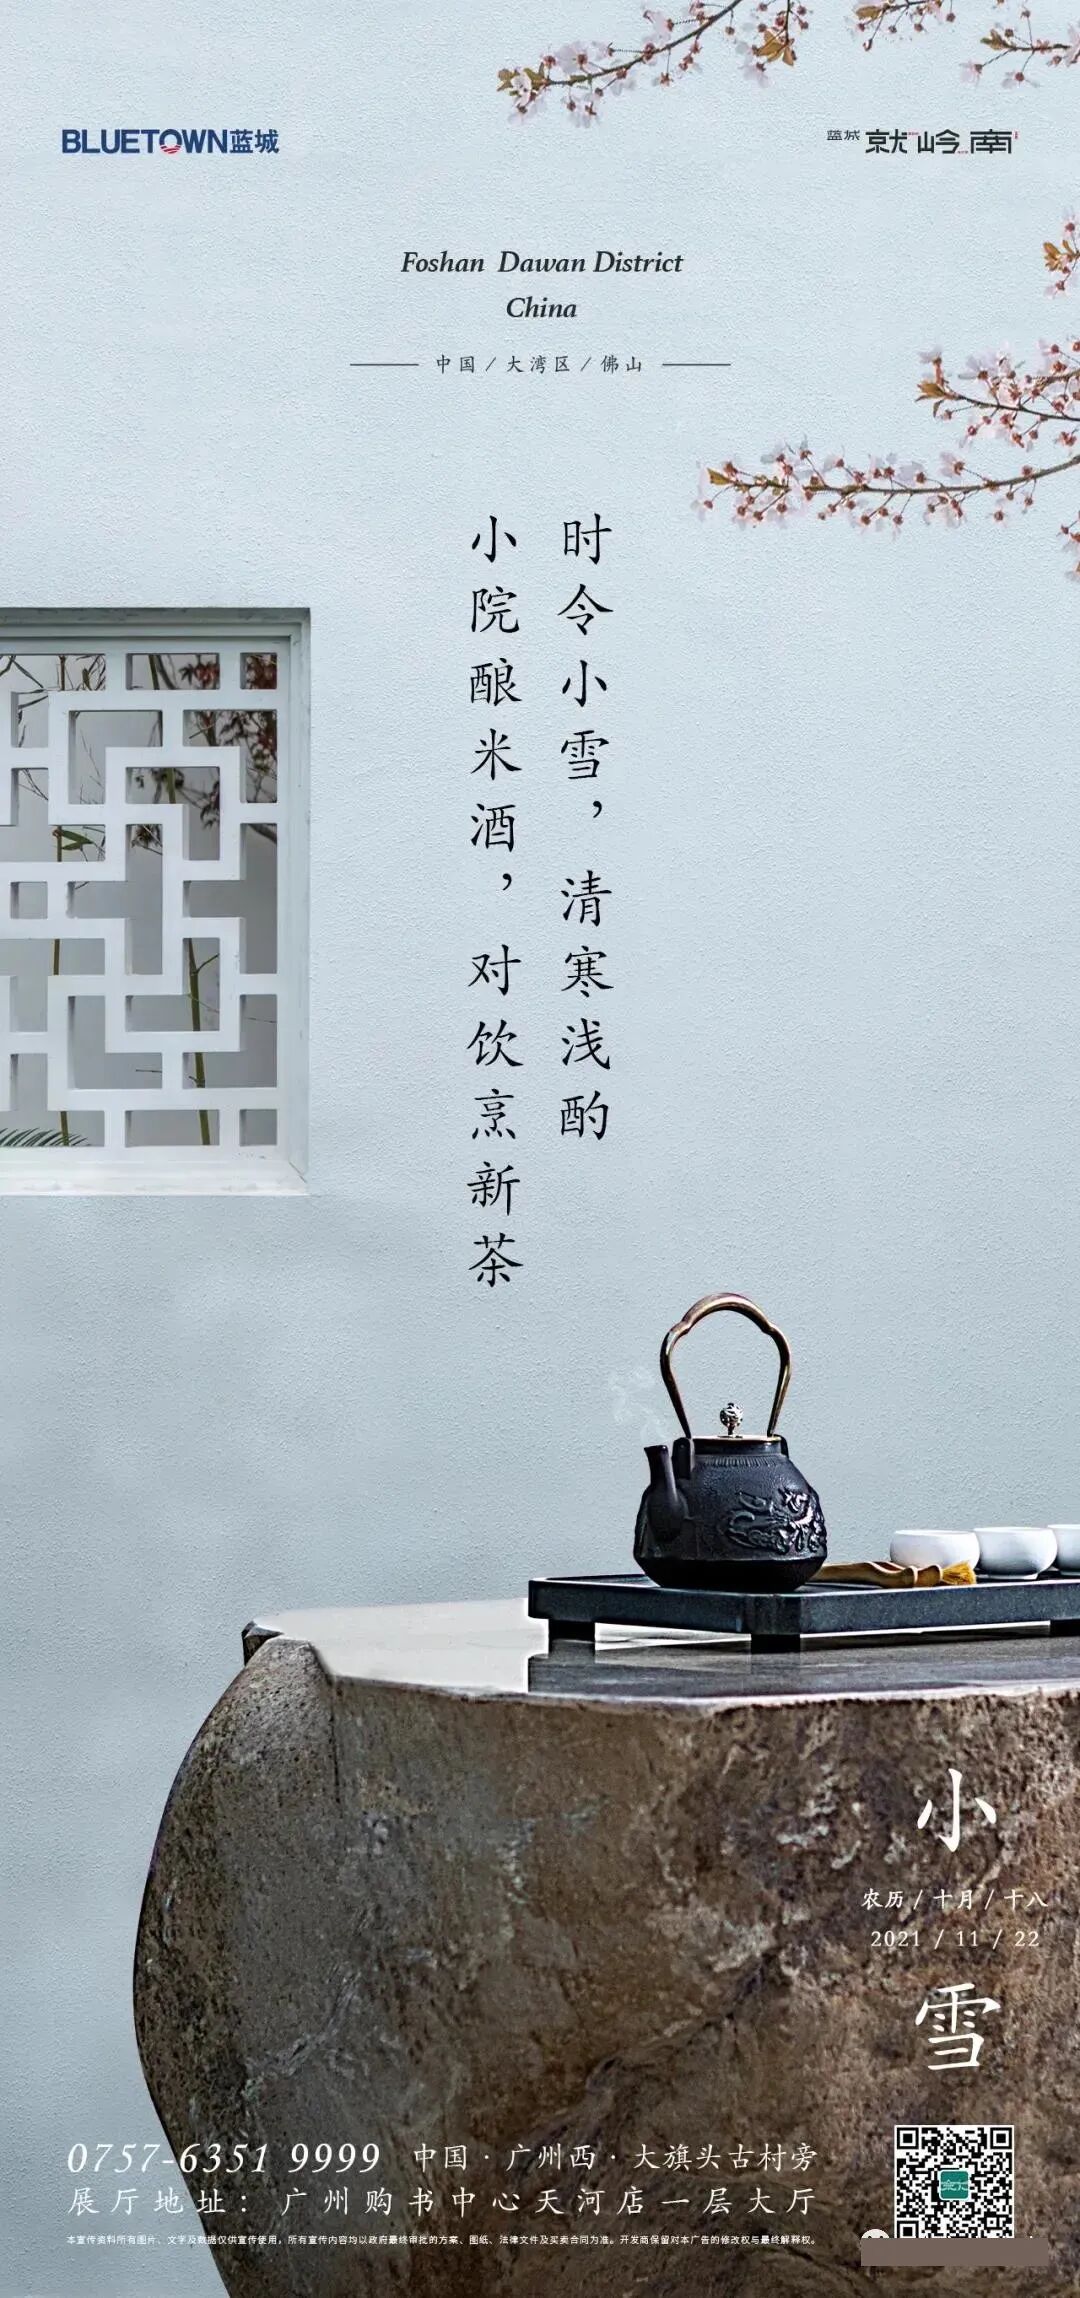 BLUETOWN蓝城
蓝城 就岭南
Foshan Dawan District
China
中国/大湾区/佛山
时令小雪，清寒浅酌
小院酿米酒，对饮烹新茶
小
农历/十月/十八
2021/11/22
雪
0757-6351 9999 中国·广州西·大旗头古村旁
展厅地址：广州购书中心天河店一层大厅
本宣传资料所有图片、文字及数据仅供宣传使用，所有宣传内容均以政府最终审批的方案、图纸、法律文件及买卖合同为准。开发商保留对本广告的修改权与最终解释权。